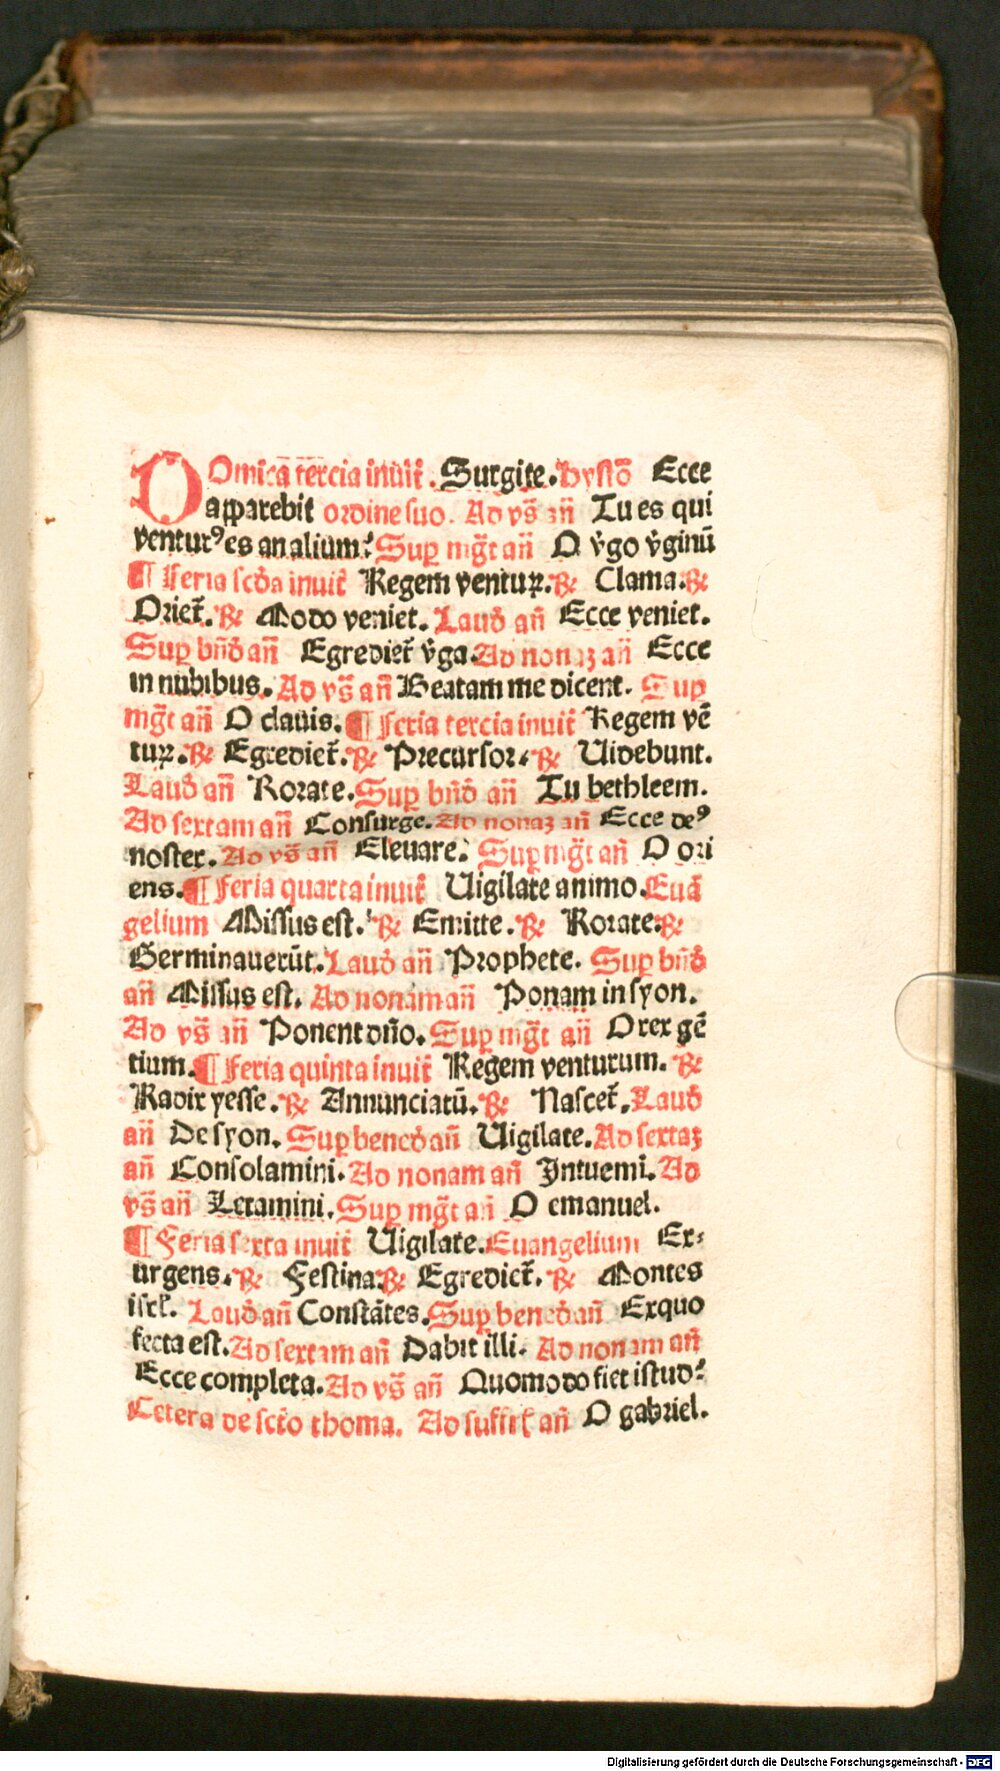 DOmīca tercia inuit̄. Surgite. hystō Ecce
apparebit ordine suo. Ad vs̄ an̄ Tu es qui
venturꝰ es an alium? Sup mḡt an̄ O v̄go v̄ginū
¶ Feria scd̄a inuit̄ Regem ventuꝝ. ℞ Clama. ℞
Oriet̄. ℞ Modo veniet. Laud̄ an̄ Ecce veniet.
Sup bn̄d an̄ Egrediet̄ v̄ga. Ad nonaꝫ an̄ Ecce
in nubibus. Ad vs̄ an̄ Beatam me dicent. Sup
mḡt an̄ O clauis. ¶ Feria tercia inuit̄ Regem vē
tuꝝ. ℞ Egrediet̄. ℞ Precursor. ℞ Uidebunt.
Laud̄ an̄ Rorate. Sup bn̄d an̄ Tu bethleem.
Ad sextam an̄ Consurge. Ad nonaꝫ an̄ Ecce deꝰ
noster. Ad vs̄ an̄ Eleuare. Sup mḡt an̄ O ori
ens. ¶ Feria quarta inuit̄ Uigilate animo. Euā
gelium Missus est. ℞ Emitte. ℞ Rorate. ℞
Germinauerūt. Laud̄ an̄ Prophete. Sup bn̄d
an̄ Missus est. Ad nonam an̄ Ponam in syon.
Ad vs̄ an̄ Ponent dn̄o. Sup mḡt an̄ O rex gē
tium. ¶ Feria quinta inuit̄ Regem venturum. ℞
Radix yesse. ℞ Annunciatū. ℞ Nascet̄. Laud̄
an̄ De syon. Sup bened̄ an̄ Uigilate. Ad sextaꝫ
an̄ Consolamini. Ad nonam an̄ Intuemi. Ad
vs̄ an̄ Letamini. Sup mḡt an̄ O emanuel.
¶ Feria sexta inuit̄ Uigilate. Euangelium Ex⸗
urgens. ℞ Festina. ℞ Egrediet̄. ℞ Montes
isrl̄. Laud̄ an̄ Constātes. Sup bened̄ an̄ Exquo
fecta est. Ad sextam an̄ Dabit illi. Ad nonam an̄
Ecce completa. Ad vs̄ an̄ Quomodo fiet istud?
Cetera de scto thoma. Ad suffrl̄ an̄ O gabriel.
Digitalisierung gefördert durch die Deutsche Forschungsgemeinschaft - DFG